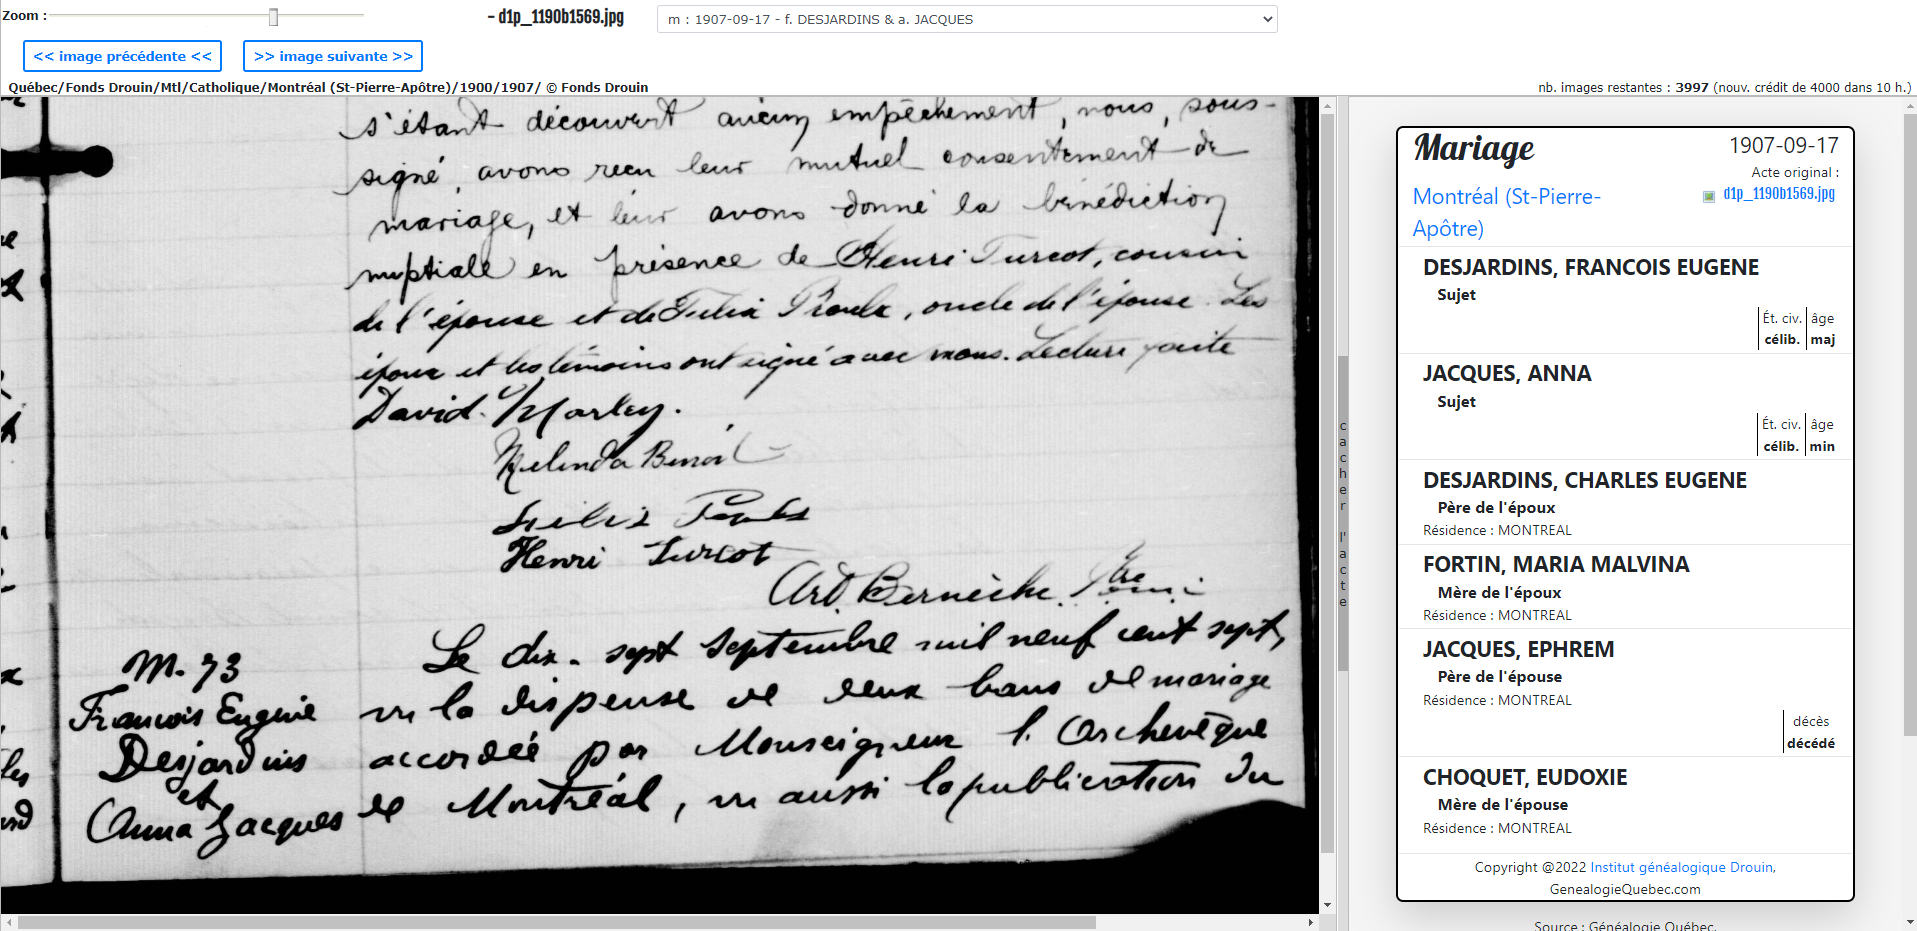 Zoom :
– d1p_1190b1569.jpg
m : 1907-09-17 - f. DESJARDINS & a. JACQUES
<< image précédente <<
>> image suivante >>
Québec/Fonds Drouin/Mtl/Catholique/Montréal (St-Pierre-Apôtre)/1900/1907/ © Fonds Drouin
nb. images restantes : 3997 (nouv. crédit de 4000 dans 10 h.)
s'étant découvert aucun empêchement, nous, sous-
signé, avons reçu leur mutuel consentement de
mariage, et leur avons donné la bénédiction
nuptiale en présence de Henri Turcot, cousin
de l'épouse et de Felix Proulx, oncle de l'épouse. Les
époux et les témoins ont signé avec nous. Lecture faite
David Marley.
Melinda Benoit
Felix Proulx
Henri Turcot
Ard. Bernèche, Ptre
M. 73
Francois Eugène
Desjardins
et
Anna Jacques
Le dix-sept septembre mil neuf cent sept,
vu la dispense de deux bans de mariage
accordée par Monseigneur l'Archevêque
de Montréal, vu aussi la publication du
cacher l'acte
Mariage
1907-09-17
Acte original :
Montréal (St-Pierre-
Apôtre)
d1p_1190b1569.jpg
DESJARDINS, FRANCOIS EUGENE
Sujet
Ét. civ. âge
célib. maj
JACQUES, ANNA
Sujet
Ét. civ. âge
célib. min
DESJARDINS, CHARLES EUGENE
Père de l'époux
Résidence : MONTREAL
FORTIN, MARIA MALVINA
Mère de l'époux
Résidence : MONTREAL
JACQUES, EPHREM
Père de l'épouse
Résidence : MONTREAL
décès
décédé
CHOQUET, EUDOXIE
Mère de l'épouse
Résidence : MONTREAL
Copyright @2022 Institut généalogique Drouin,
GenealogieQuebec.com
Source : Généalogie Québec.